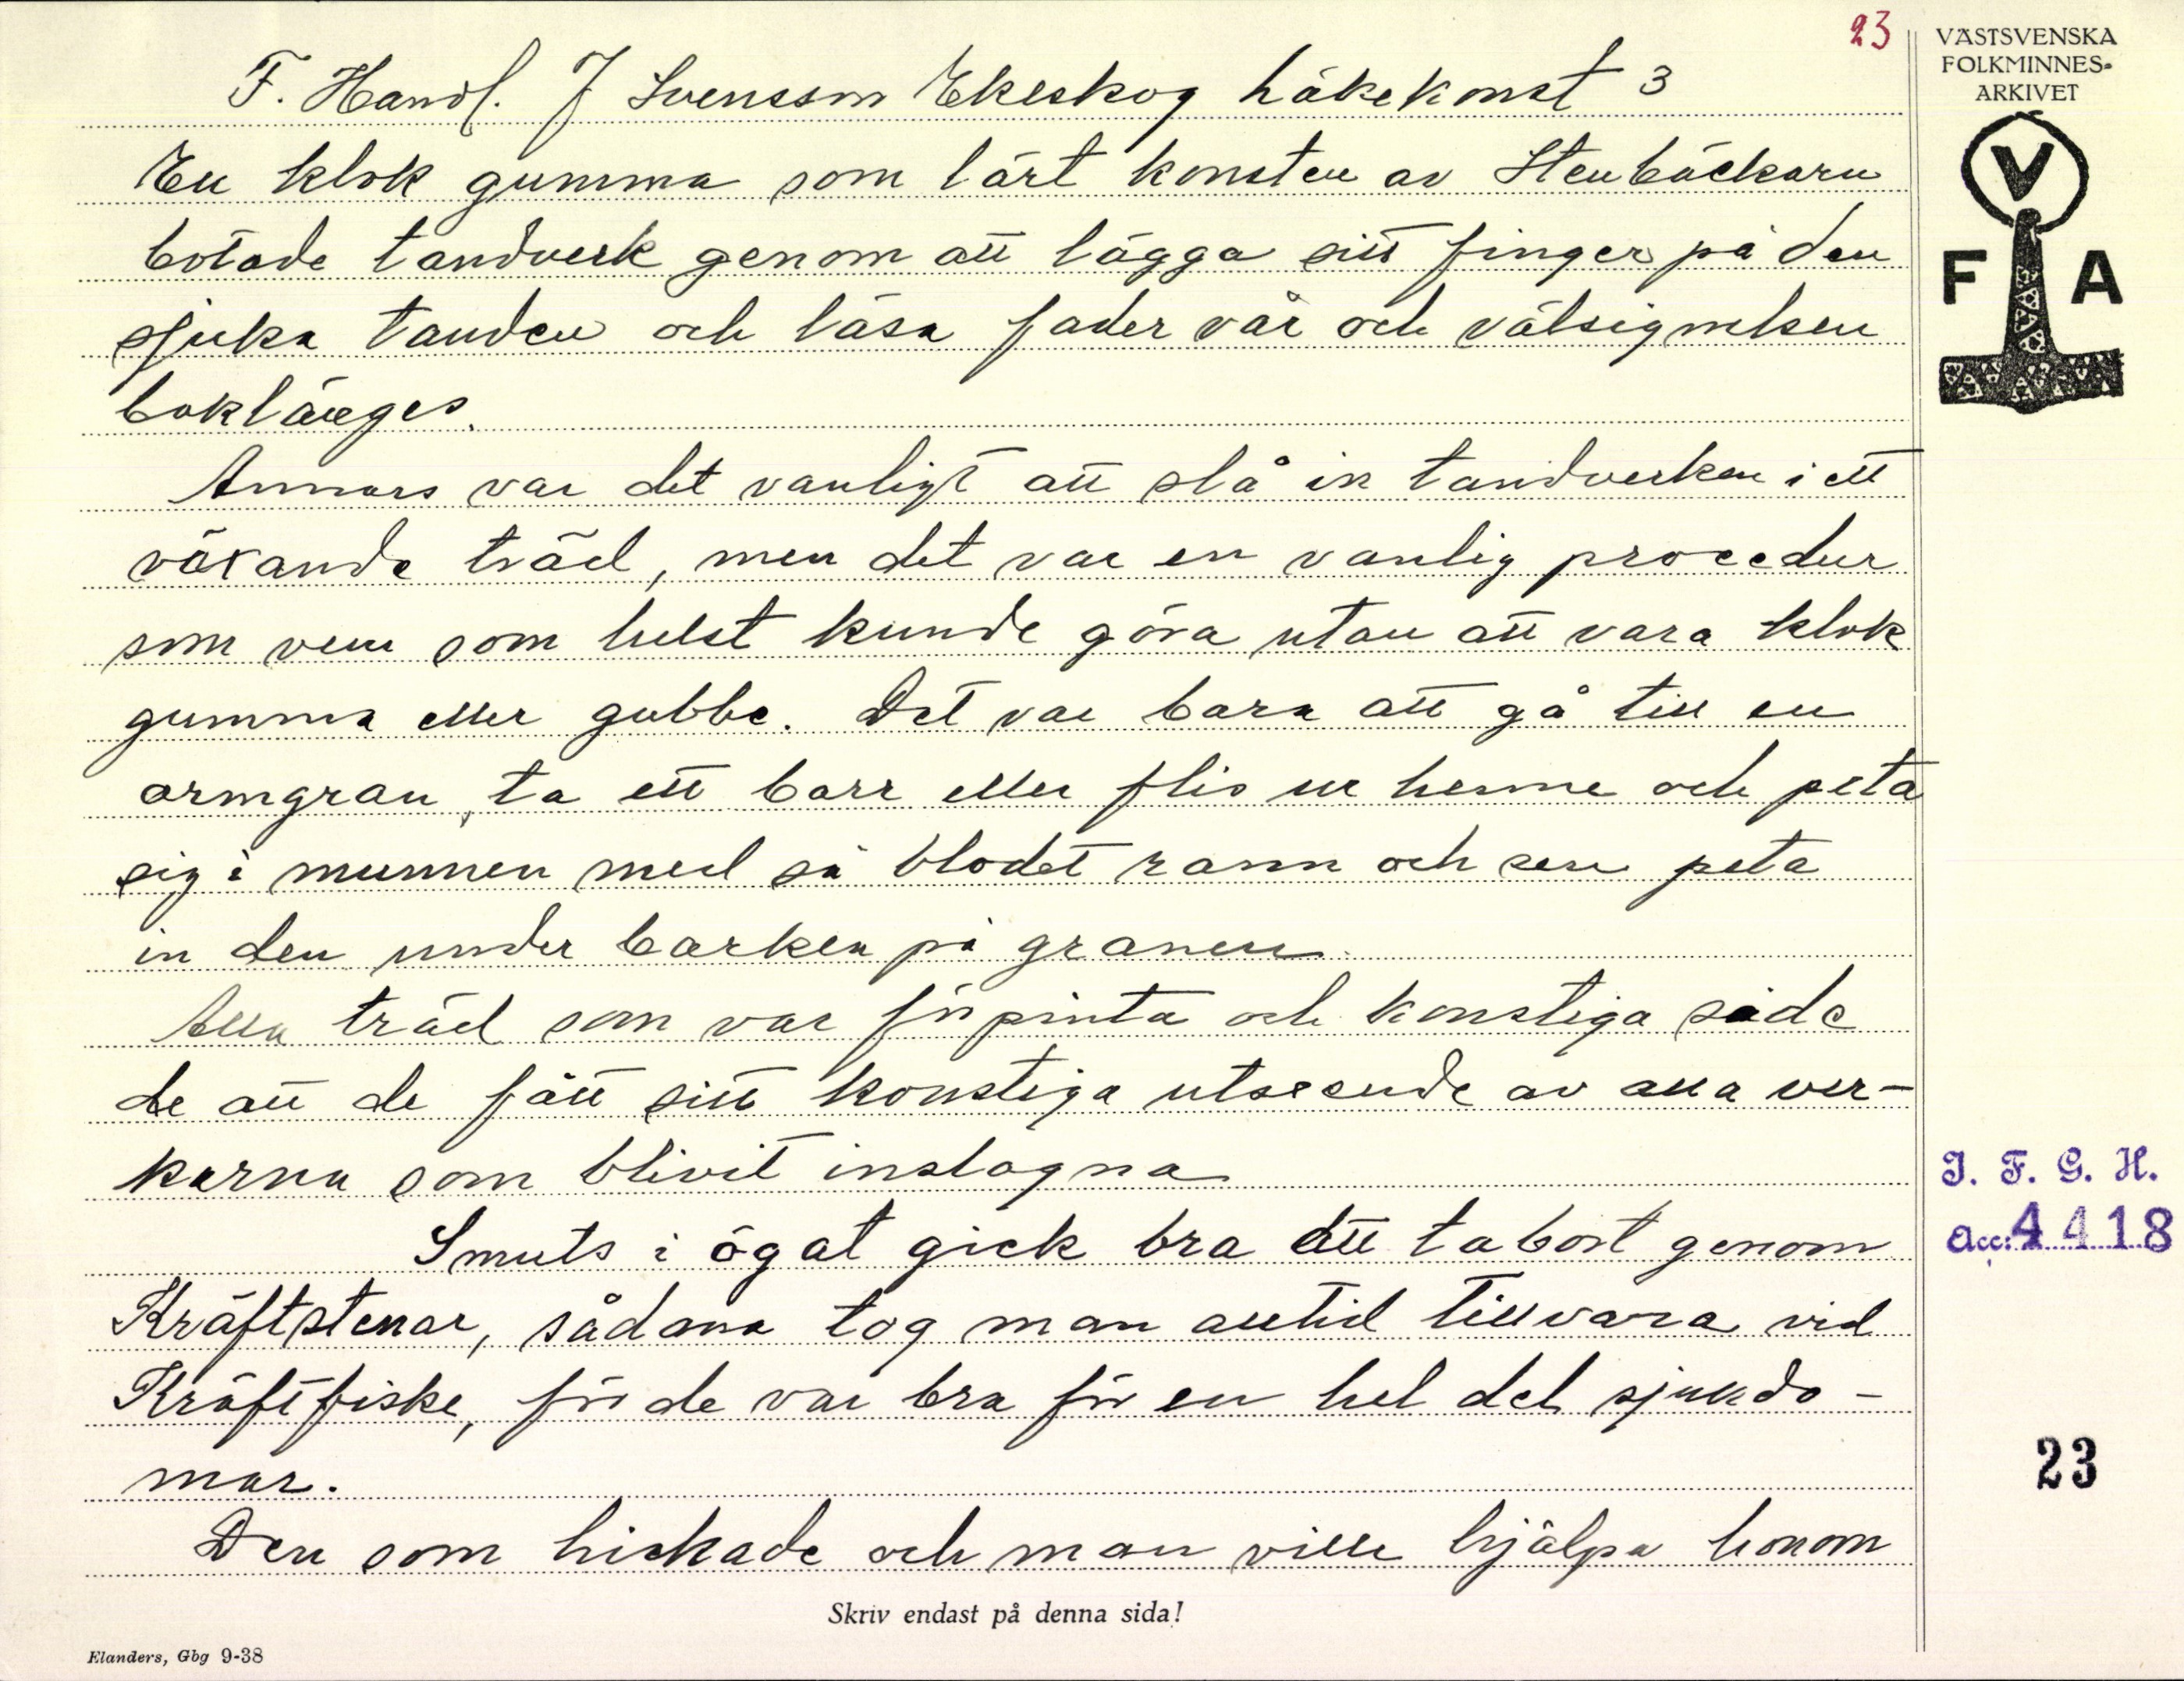 23
VÄSTSVENSKA
FOLKMINNES-
ARKIVET
V
F A
F. Handl. J Svensson Ekeskog Läkekonst 3
En klok gumma som lärt konsten av Stenbäckarn
botade tandverk genom att lägga sitt finger på den
sjuka tanden och läsa fader vår och välsignelsen
baklänges.
Annars var det vanligt att slå in tandverken i ett
växande träd, men det var en vanlig procedur
som vem som helst kunde göra utan att vara klok
gumma eller gubbe. Det var bara att gå till en
ormgran, ta ett barr eller flis ur henne och peta
sig i munnen med så blodet rann och sen peta
in den under barken på granen.
Alla träd som var förpinta och konstiga sade
de att de fått sitt konstiga utseende av alla ver-
karna som blivit inslagna
Smuts i ögat gick bra att ta bort genom
Kräftstenar, sådana tog man alltid tillvara vid
Kräftfiske, för de var bra för en hel del sjukdo-
mar.
Den som hickade och man ville hjälpa honom
I. F. G. H.
Acc: 4418
23
Skriv endast på denna sida!
Elanders, Gbg 9-38